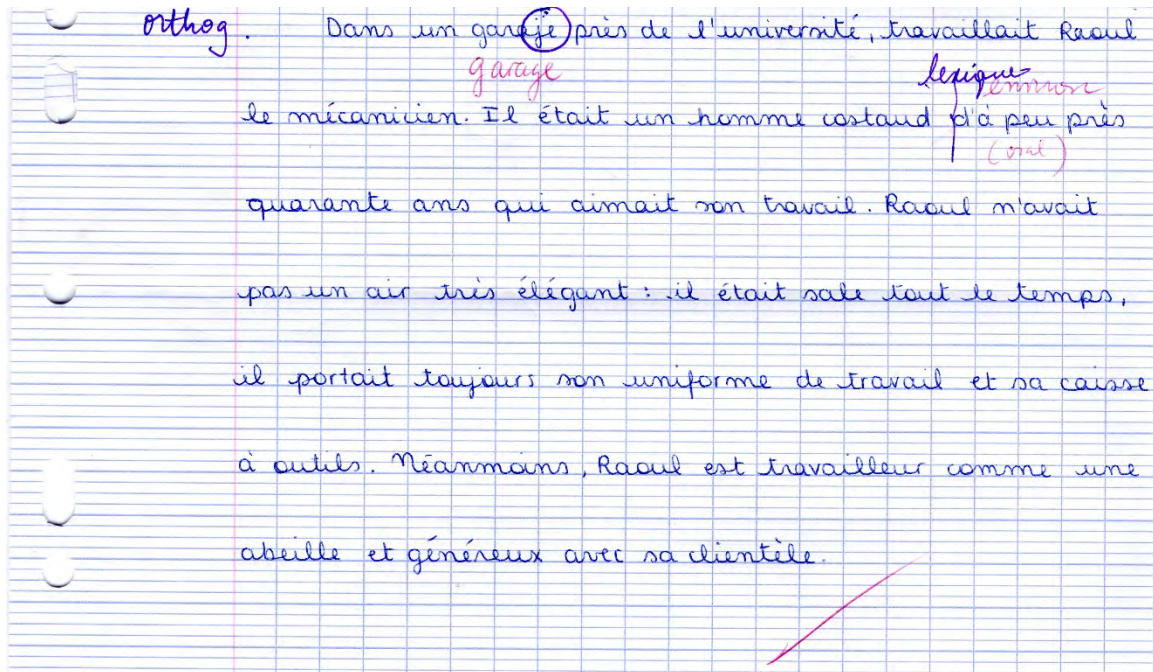 orthog. Dans un garaje près de l'université, travaillait Raoul
garage lexique environ
le mécanicien. Il était un homme costaud d'à peu près
(oral)
quarante ans qui aimait son travail. Raoul n'avait
pas un air très élégant : il était sale tout le temps,
il portait toujours son uniforme de travail et sa caisse
à outils. Néanmoins, Raoul est travailleur comme une
abeille et généreux avec sa clientèle.